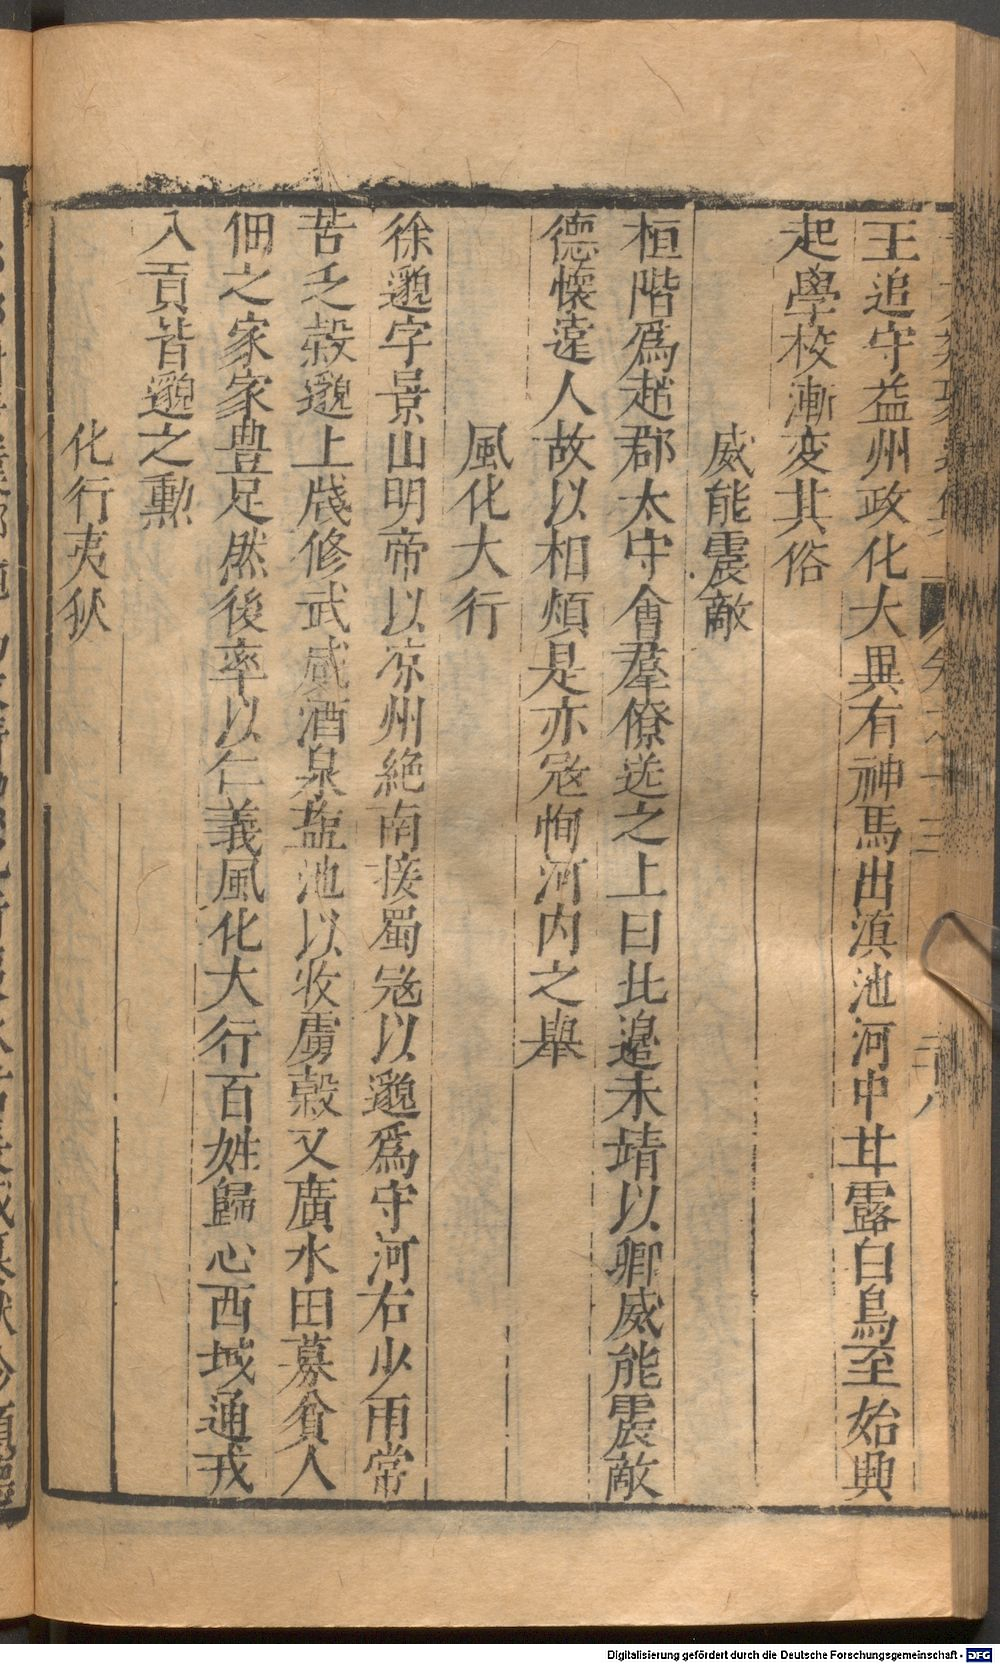 王追守益州政化大異有神馬出滇池河中甘露白烏至始興
起學校漸変其俗
威能震敵
桓階爲趙郡太守會羣僚送之上曰此邉未靖以卿威能震敵
德懷遠人故以相煩是亦寇恂河内之舉
風化大行
徐邈字景山明帝以凉州絶南接蜀寇以邈爲守河右少雨常
苦乏穀邈上牋修武威酒泉塩池以收虜穀又廣水田募貧人
佃之家家豊足然後率以仁義風化大行百姓歸心西域通戎
入貢皆邈之勲
化行夷狄
Digitalisierung gefördert durch die Deutsche Forschungsgemeinschaft - DFG